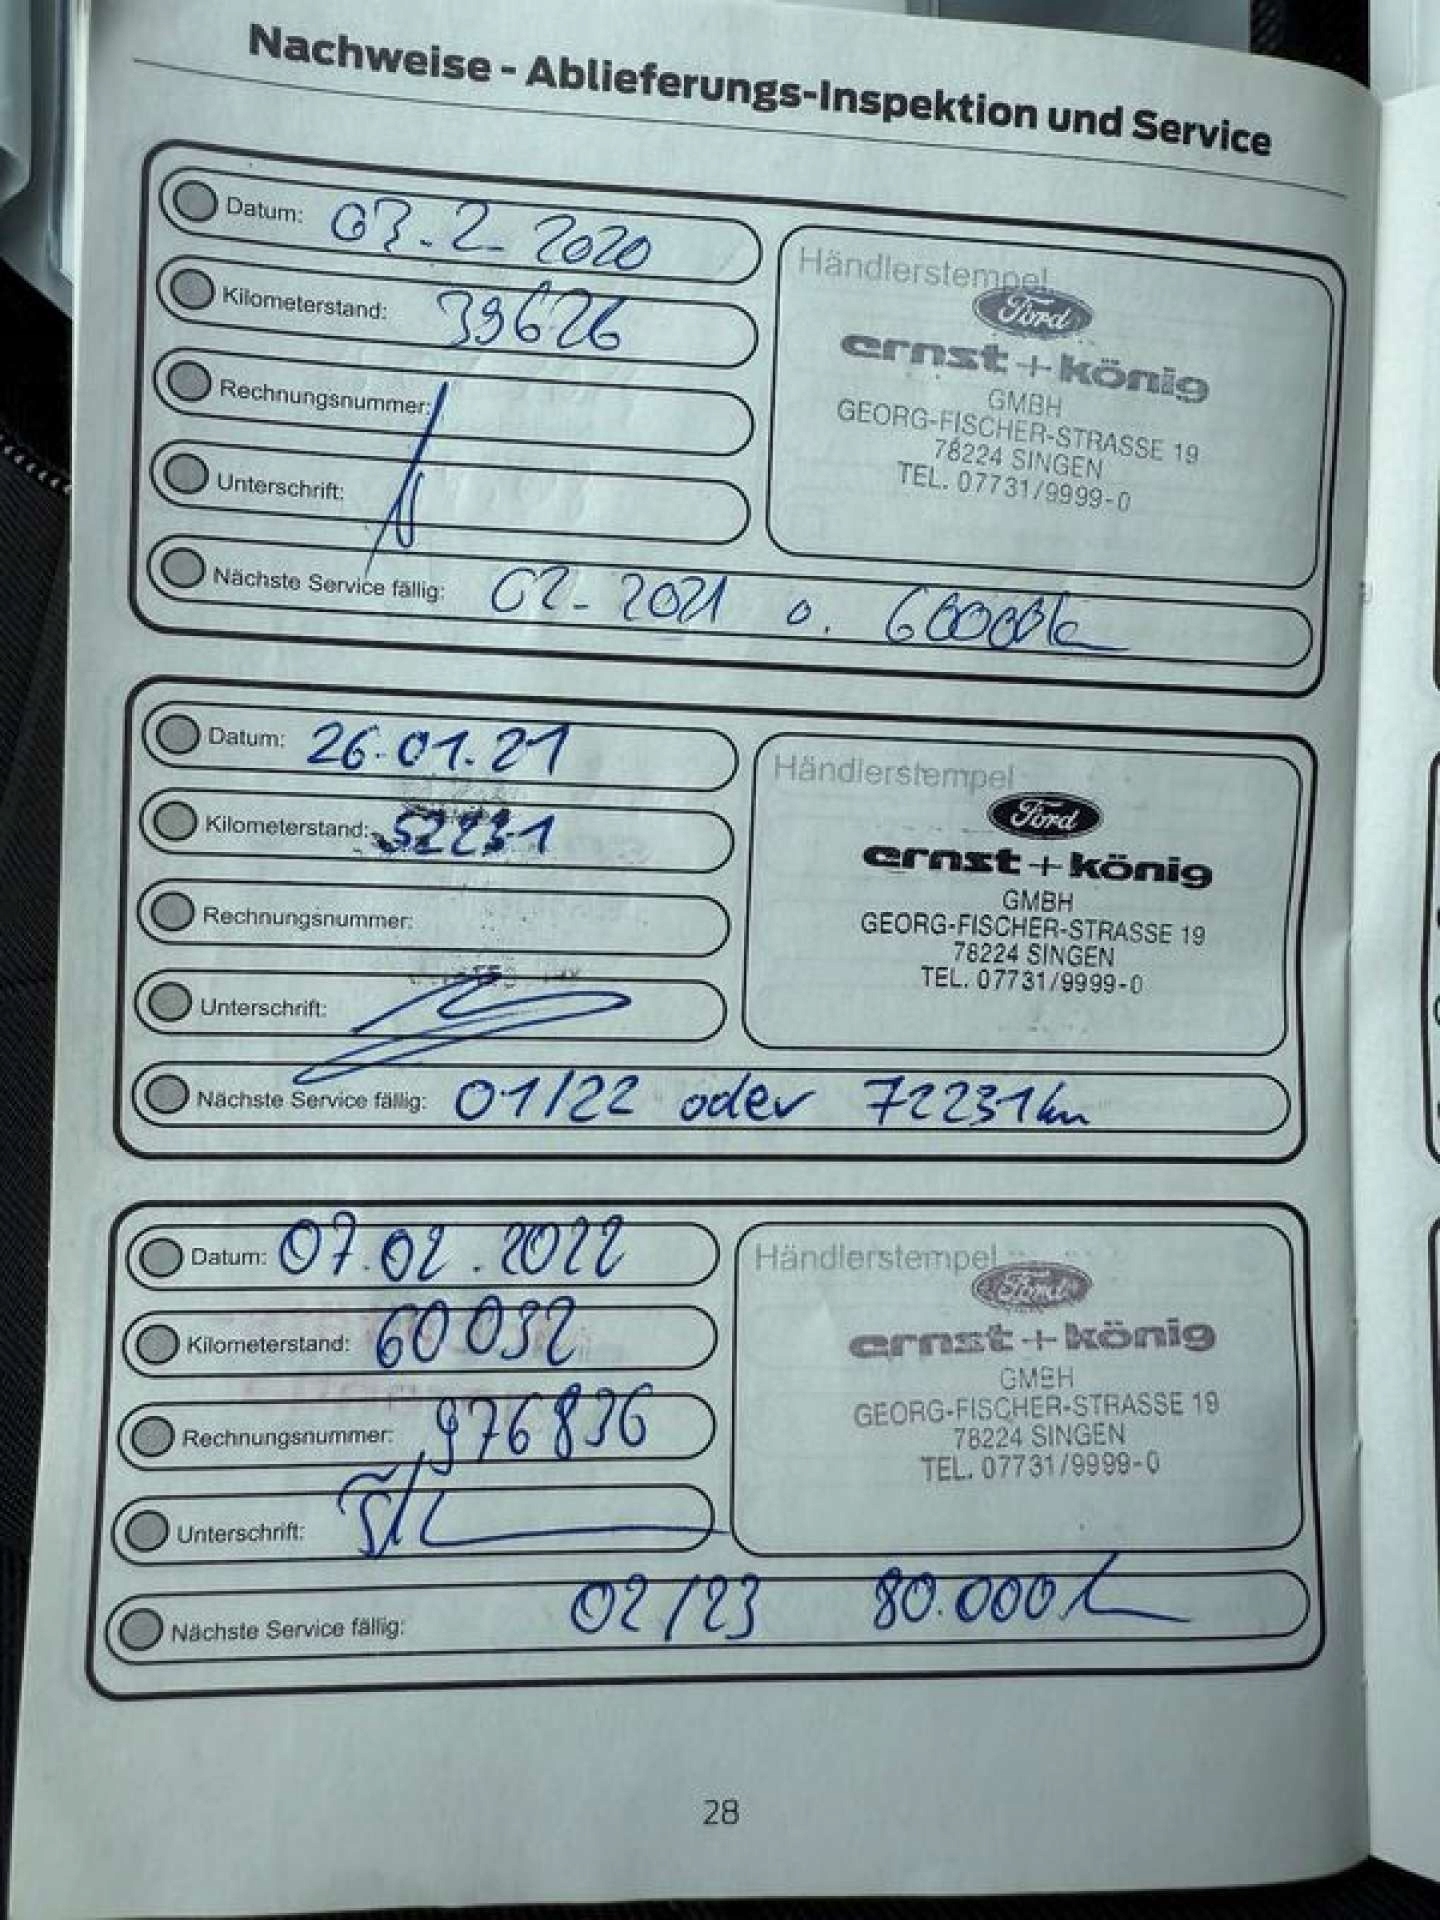 Nachweise - Ablieferungs-Inspektion und Service
Datum: 07.2.2020
Kilometerstand: 39626
Rechnungsnummer:
Unterschrift:
Nächste Service fällig: 02-2021 o. 60000k
Händlerstempel
Ford
ernst + könig
GMBH
GEORG-FISCHER-STRASSE 19
78224 SINGEN
TEL. 07731/9999-0
Datum: 26.01.21
Kilometerstand: 52231
Rechnungsnummer:
Unterschrift:
Nächste Service fällig: 01/22 oder 72231km
Händlerstempel
Ford
ernst + könig
GMBH
GEORG-FISCHER-STRASSE 19
78224 SINGEN
TEL. 07731/9999-0
Datum: 07.02.2022
Kilometerstand: 60032
Rechnungsnummer: 976836
Unterschrift:
Nächste Service fällig: 02/23 80.000
Händlerstempel
Ford
ernst + könig
GMBH
GEORG-FISCHER-STRASSE 19
78224 SINGEN
TEL. 07731/9999-0
28